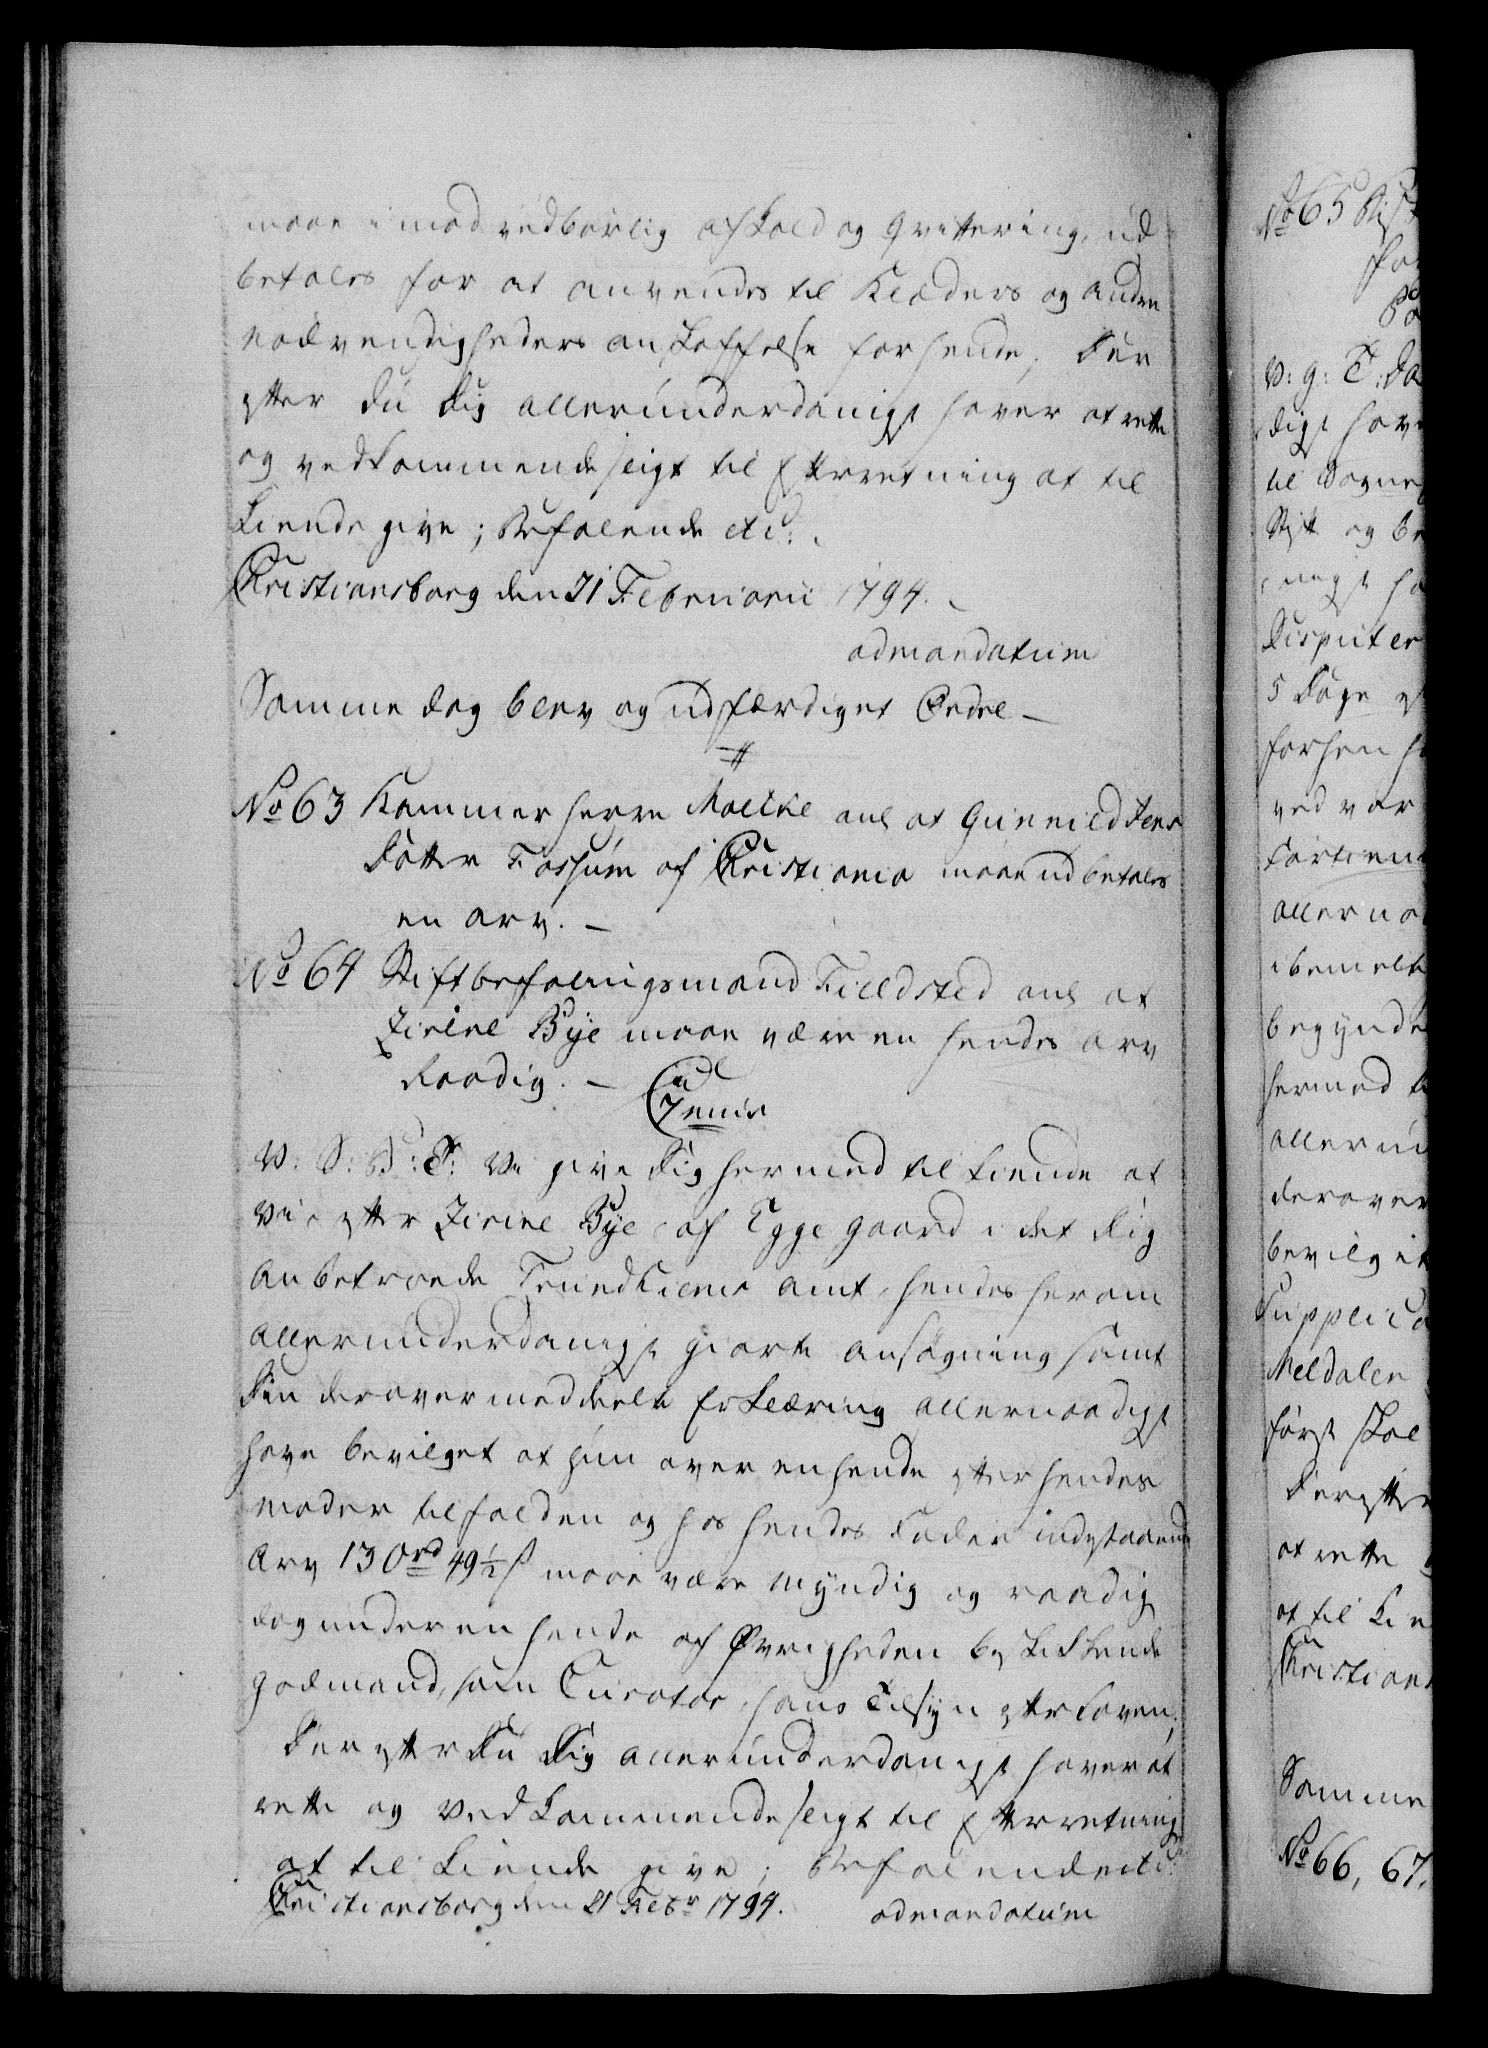 maae imod vedbørlig afkald og Qvittering, ud-
betales for at anvendes til Klæders og anden
nødvendigheders anskaffelse for hende; Der
efter Du Dig allerunderdanigst haver at rette
og vedkommende sligt til Efterretning at til
kiende give; Befalende etc:
Christiansborg den 21 Februarii 1794.
admandatum
Samme dag blev og udfærdiget Ordre
No 63 Kammerherre Moltke anl at Gunnild Jens
Dotter Fossum af Christiania maae udbetales
en arv.
No 64 Stiftbefalingsmand Fieldsted anl at
Zirine Bye maae være en hendes arv
Raadig.
Genir
V: S: B: T: Vi give Dig hermed tilkiende at
Vi efter Zirine Bye af Egge gaard i det Dig
Anbetroede Trundhiems Amt, hendes herom
Allerunderdanigst giorte Ansøgning samt
Din derover meddeelte Erklæring allernaadigst
have bevilget at hun over en hende efter hendes
moder tilfalden og hos hendes Fader indestaaende
Arv 130 rd 49½ s maae være myndig og raadig
dog under en hende af Øvrigheden beskikkende
godmand, som Curator, hans Tilsyn efter Loven;
Derefter Du Dig allerunderdanigst haver at
rette og Vedkommende sligt til Efterretning
at til kiende give; Befalende etc:
Christiansborg den 21 Febr 1794. admandatum
No 65 Stift
for
V: g: T: Da
digst have
til Sogne
Stift og be
nigst ha
Disputer
5 Dage
forhen h
ved vor
allerna
ibemelte
begynde
hermed
allerun
derover
bevilget
Supplica
Meldalen
først skal
Derefter
at rette
at til kie
Christians
Samme
No 66, 67.